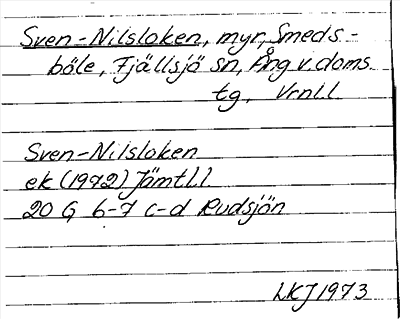 Sven-Nilsloken, myr, Smeds-
böle, Fjällsjö sn, Ång v. doms.
tg, Vrnll
Sven-Nilsloken
ek (1972) Jämtl l
20 G 6-7 c-d Rudsjön
LKJ 1973